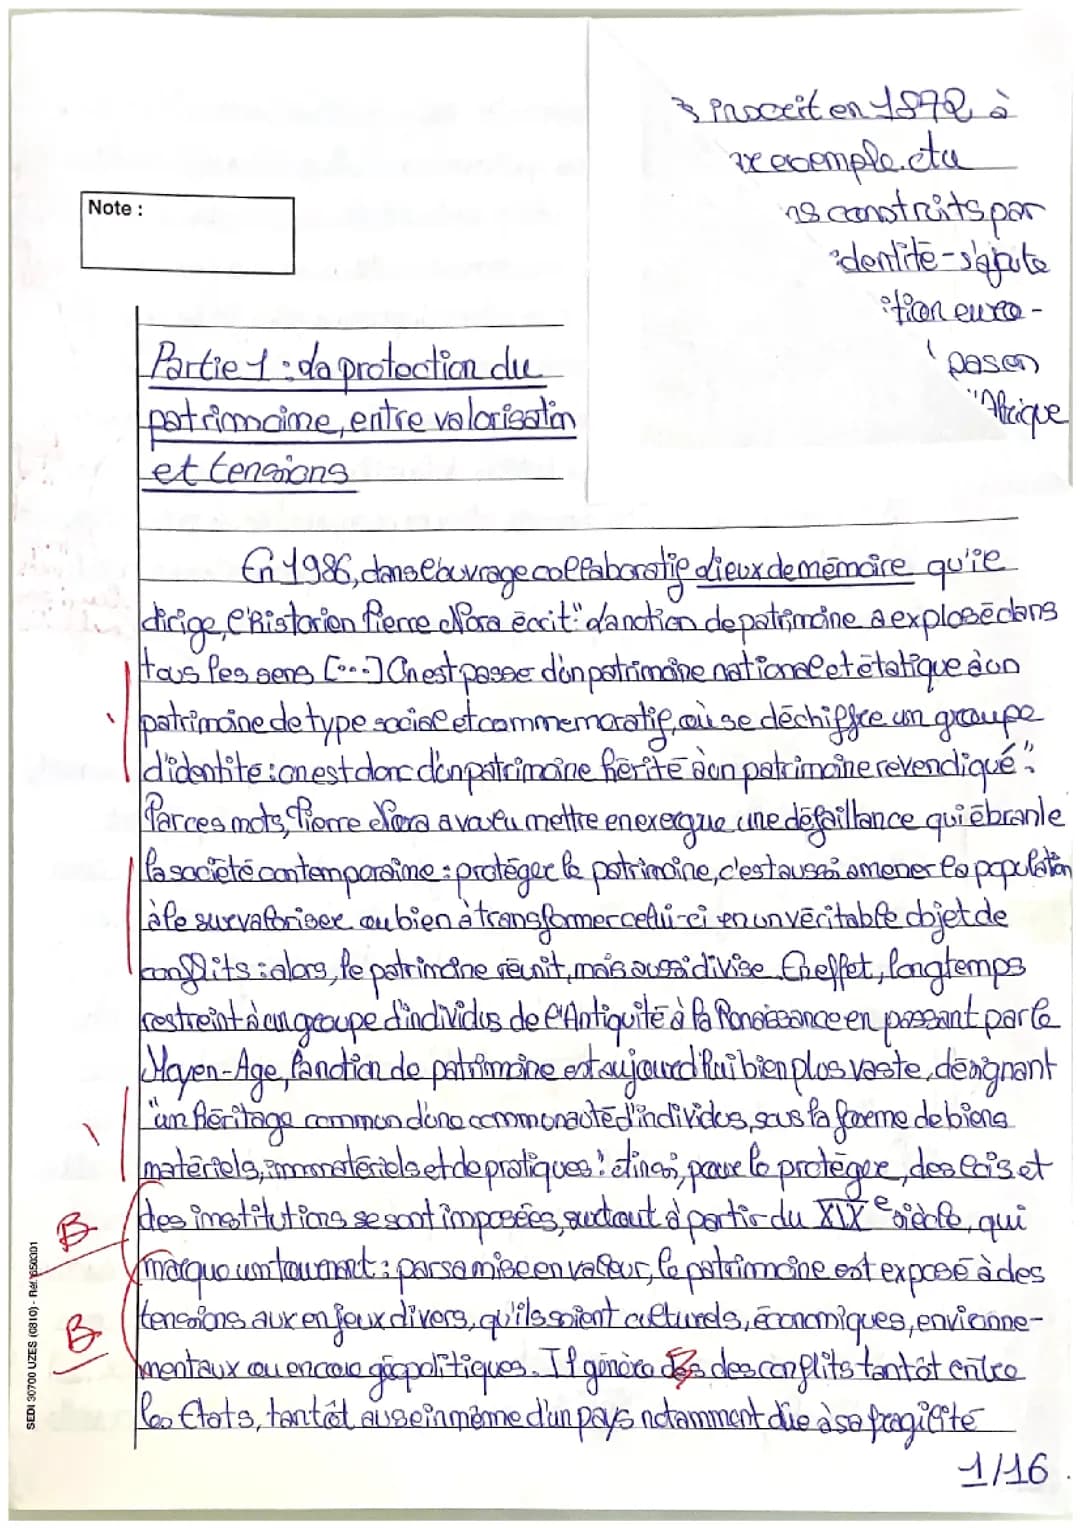 inscrit en 1972 à
exemple. Au
ns construits par
identité - s'ajoute
ition euro-
pas en
"Afrique
Note :
Partie 1 : La protection du
patrimoine, entre valorisation
et tensions
En 1986, dans l'ouvrage collaboratif Lieux de mémoire qu'il
dirige, l'historien Pierre Nora écrit : "La notion de patrimoine a explosé dans
tous les sens [...] On est passé d'un patrimoine national et étatique à un
patrimoine de type social et commémoratif, où se déchiffre un groupe
d'identité : on est donc d'un patrimoine hérité à un patrimoine revendiqué".
Par ces mots, Pierre Nora a voulu mettre en exergue une défaillance qui ébranle
la société contemporaine : protéger le patrimoine, c'est aussi amener la population
à le survaloriser ou bien à transformer celui-ci en un véritable objet de
conflits : alors, le patrimoine réunit, mais aussi divise. En effet, longtemps
restreint à un groupe d'individus de l'Antiquité à la Renaissance en passant par le
Moyen-Age, la notion de patrimoine est aujourd'hui bien plus vaste, désignant
"un héritage commun d'une communauté d'individus, sous la forme de biens
matériels, immatériels et de pratiques". Ainsi, pour le protéger, des lois et
des institutions se sont imposées, surtout à partir du XIXe siècle, qui
B
marque un tournant : par sa mise en valeur, le patrimoine est exposé à des
tensions aux enjeux divers, qu'ils soient culturels, économiques, environne-
B
mentaux ou encore géopolitiques. Il génère des conflits tantôt entre
les Etats, tantôt au sein même d'un pays notamment due à sa fragilité
1/16
SEDI 30700 UZES (0810) - Réf.